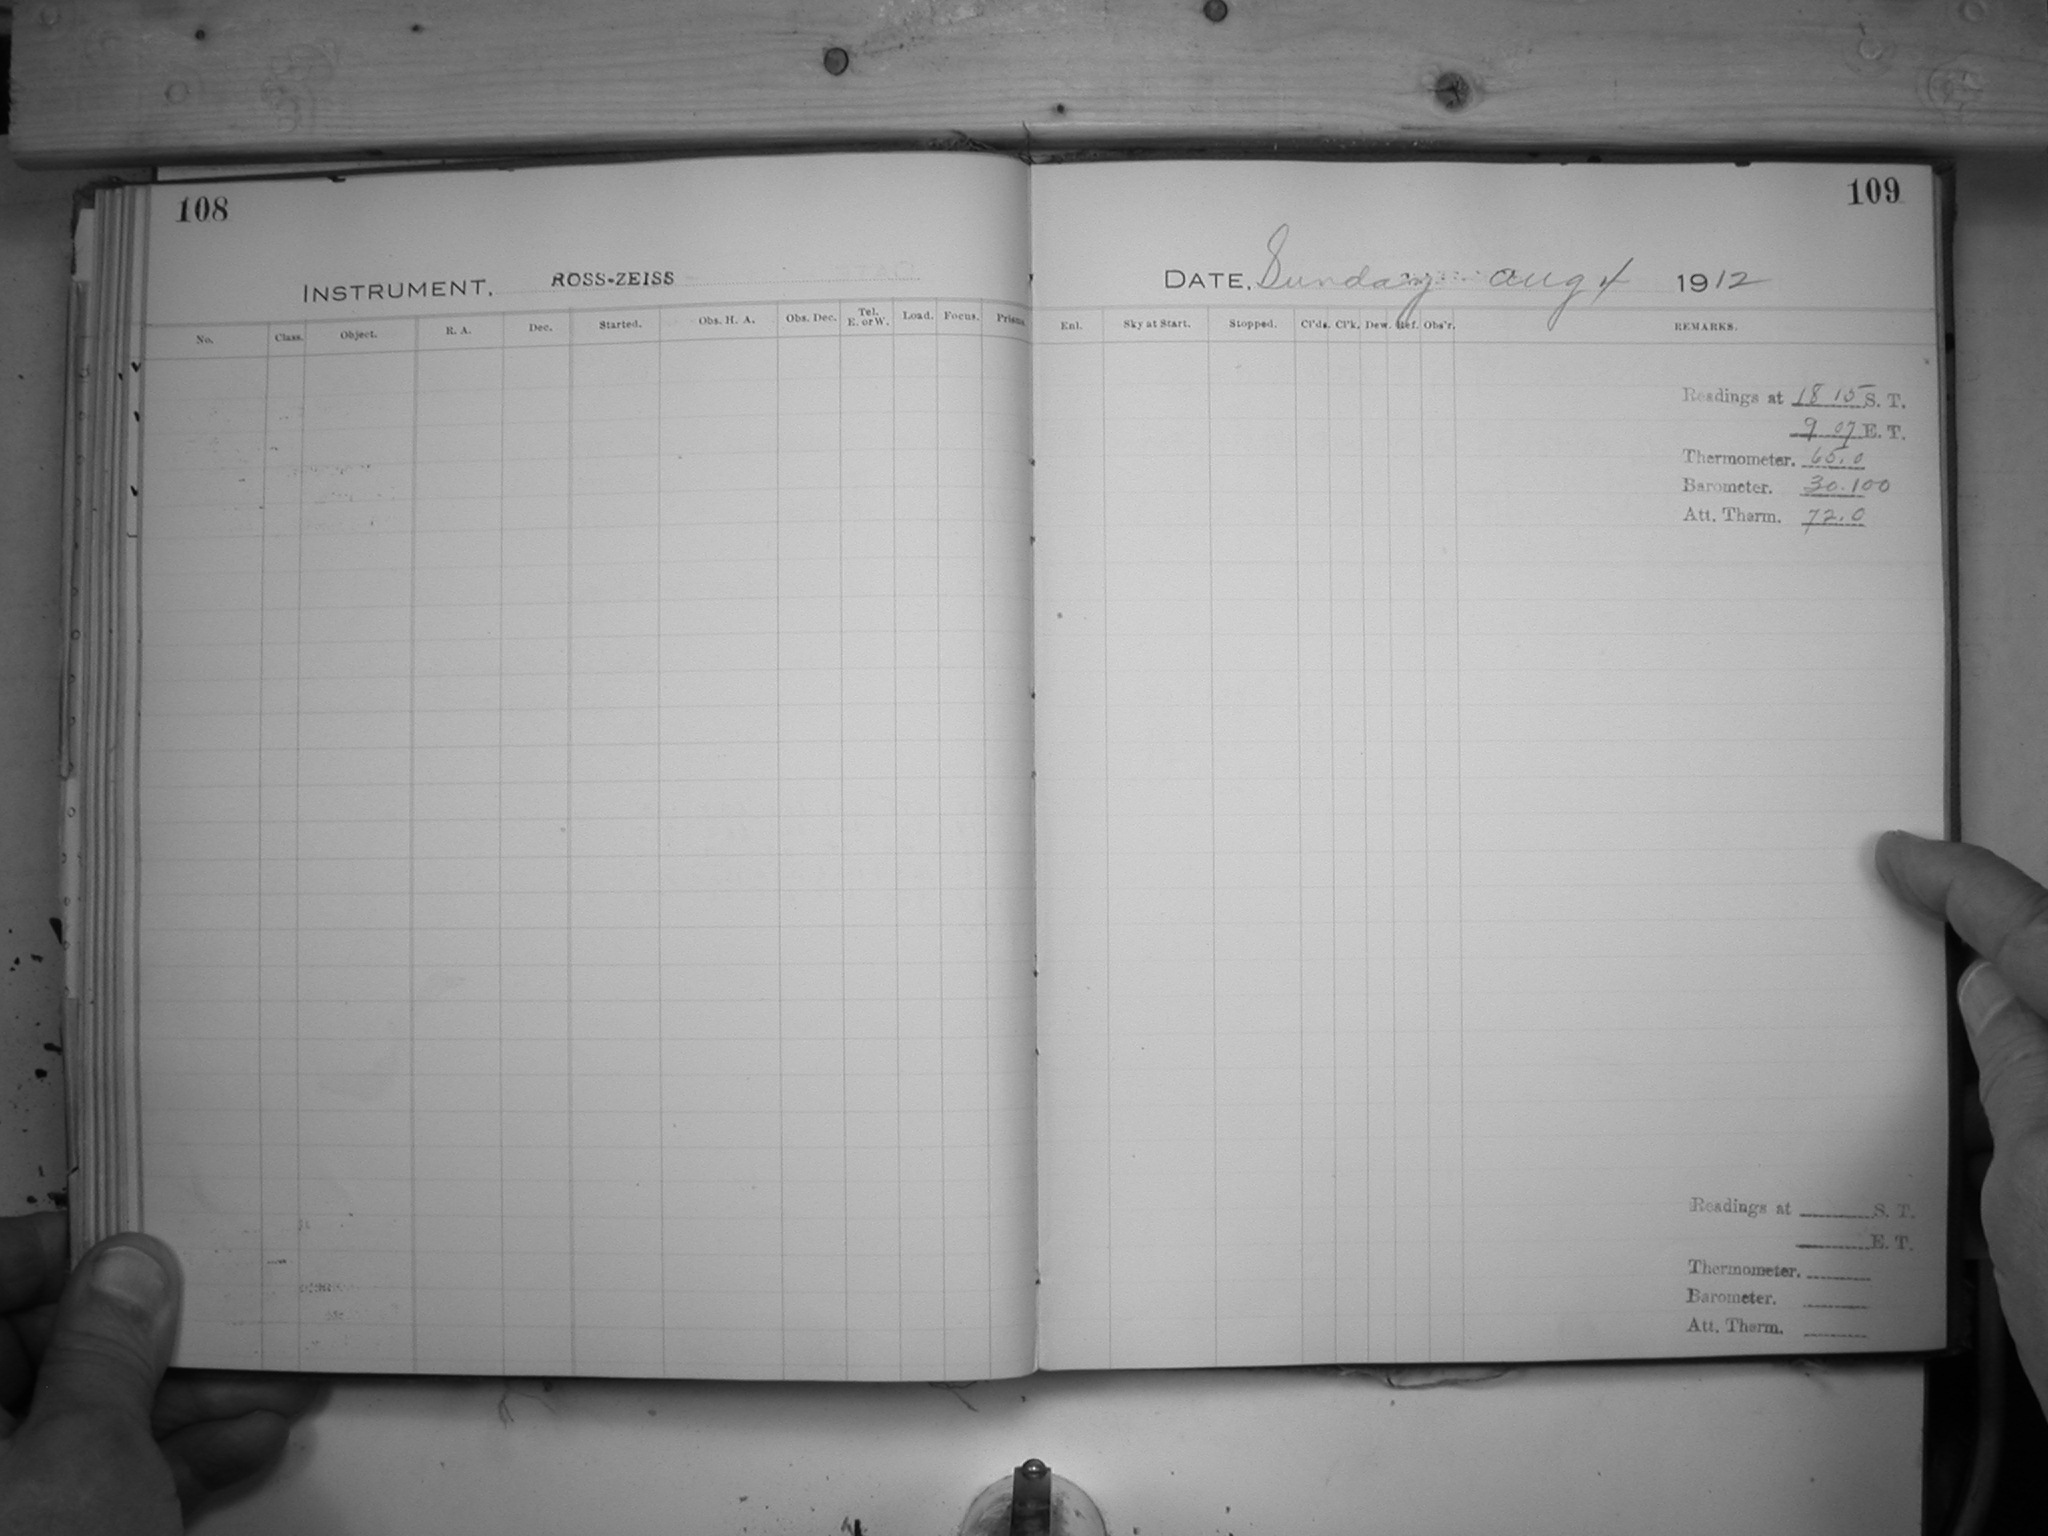 108
INSTRUMENT, ROSS-ZEISS
No. Class. Object. R. A. Dec. Started. Obs. H. A. Obs. Dec. Tel. E. or W. Load. Focus. Prisms
109
DATE, Sunday Aug 4 1912
Enl. Sky at Start. Stopped. Cl'ds. Cl'k. Dew. Ref. Obs'r. REMARKS.
Readings at 18 15 S. T.
9 07 E. T.
Thermometer. 65.0
Barometer. 30.100
Att. Therm. 72.0
Readings at S. T.
E. T.
Thermometer.
Barometer.
Att. Therm.